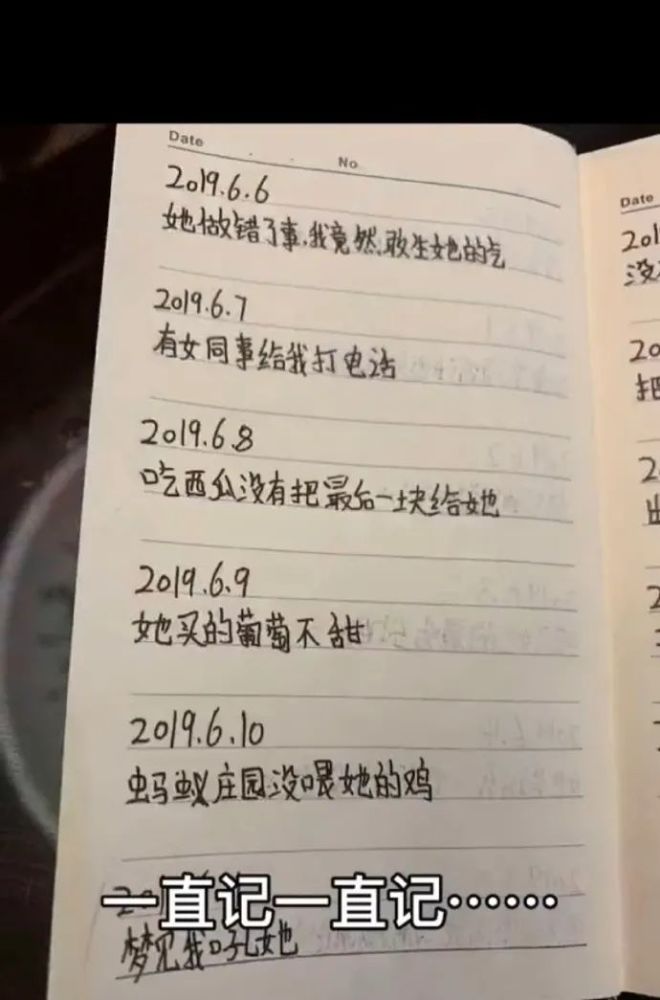 Date
No
2019.6.6
她做错了事,我竟然敢生她的气
2019.6.7
有女同事给我打电话
2019.6.8
吃西瓜没有把最后一块给她
2019.6.9
她买的葡萄不甜
2019.6.10
蚂蚁庄园没喂她的鸡
一直记一直记……
梦见我吼她
Date
201
没
20
把
2
出
2